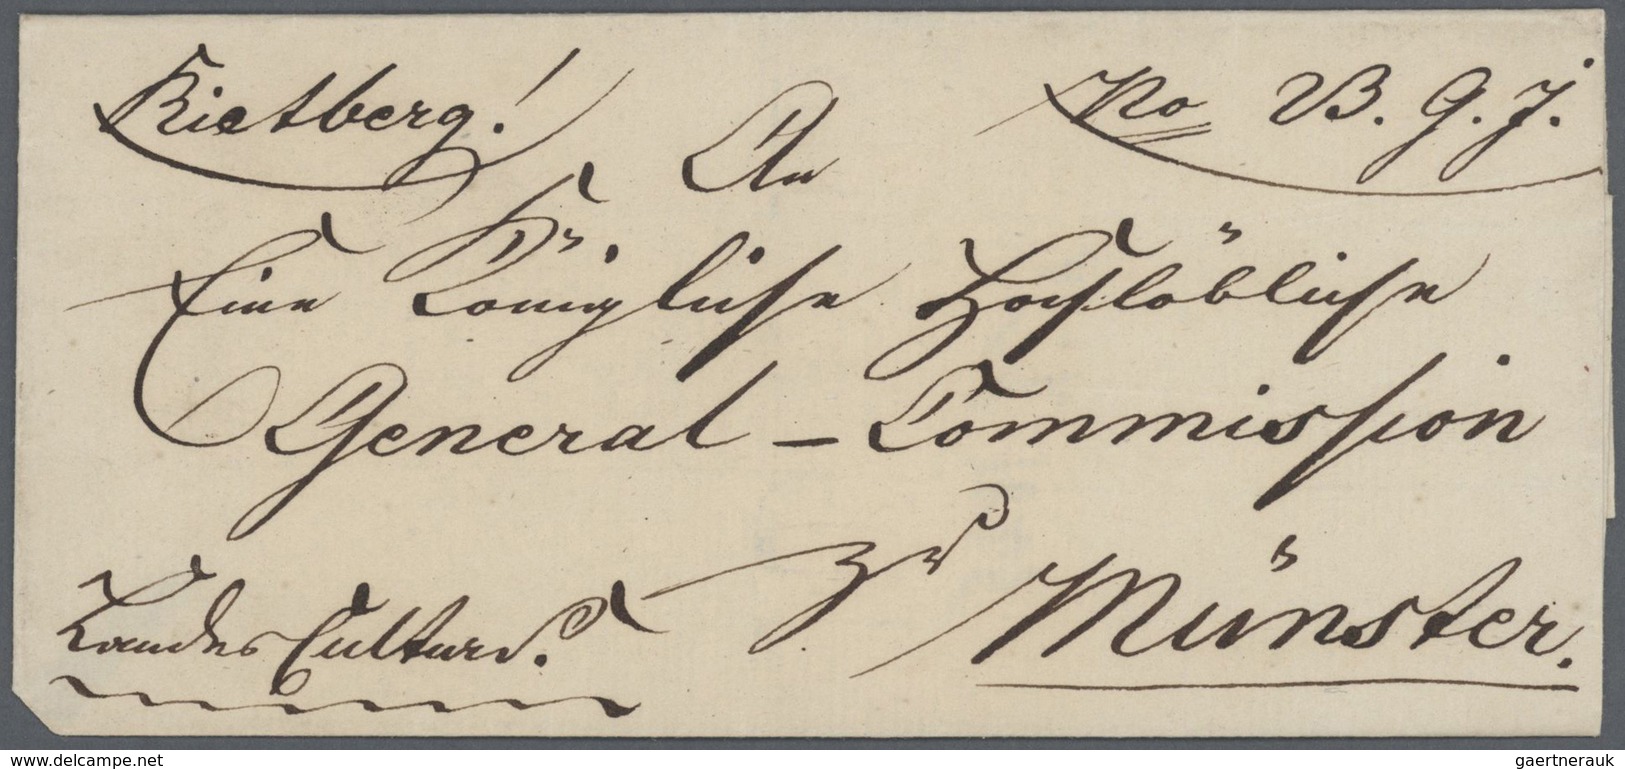 Rietberg!
No B. G. J.
An
Eine Königliche Hochlöbliche
General-Commission
zu
Münster.
Landes Culturs.
delcampe.net
gaertnerauk